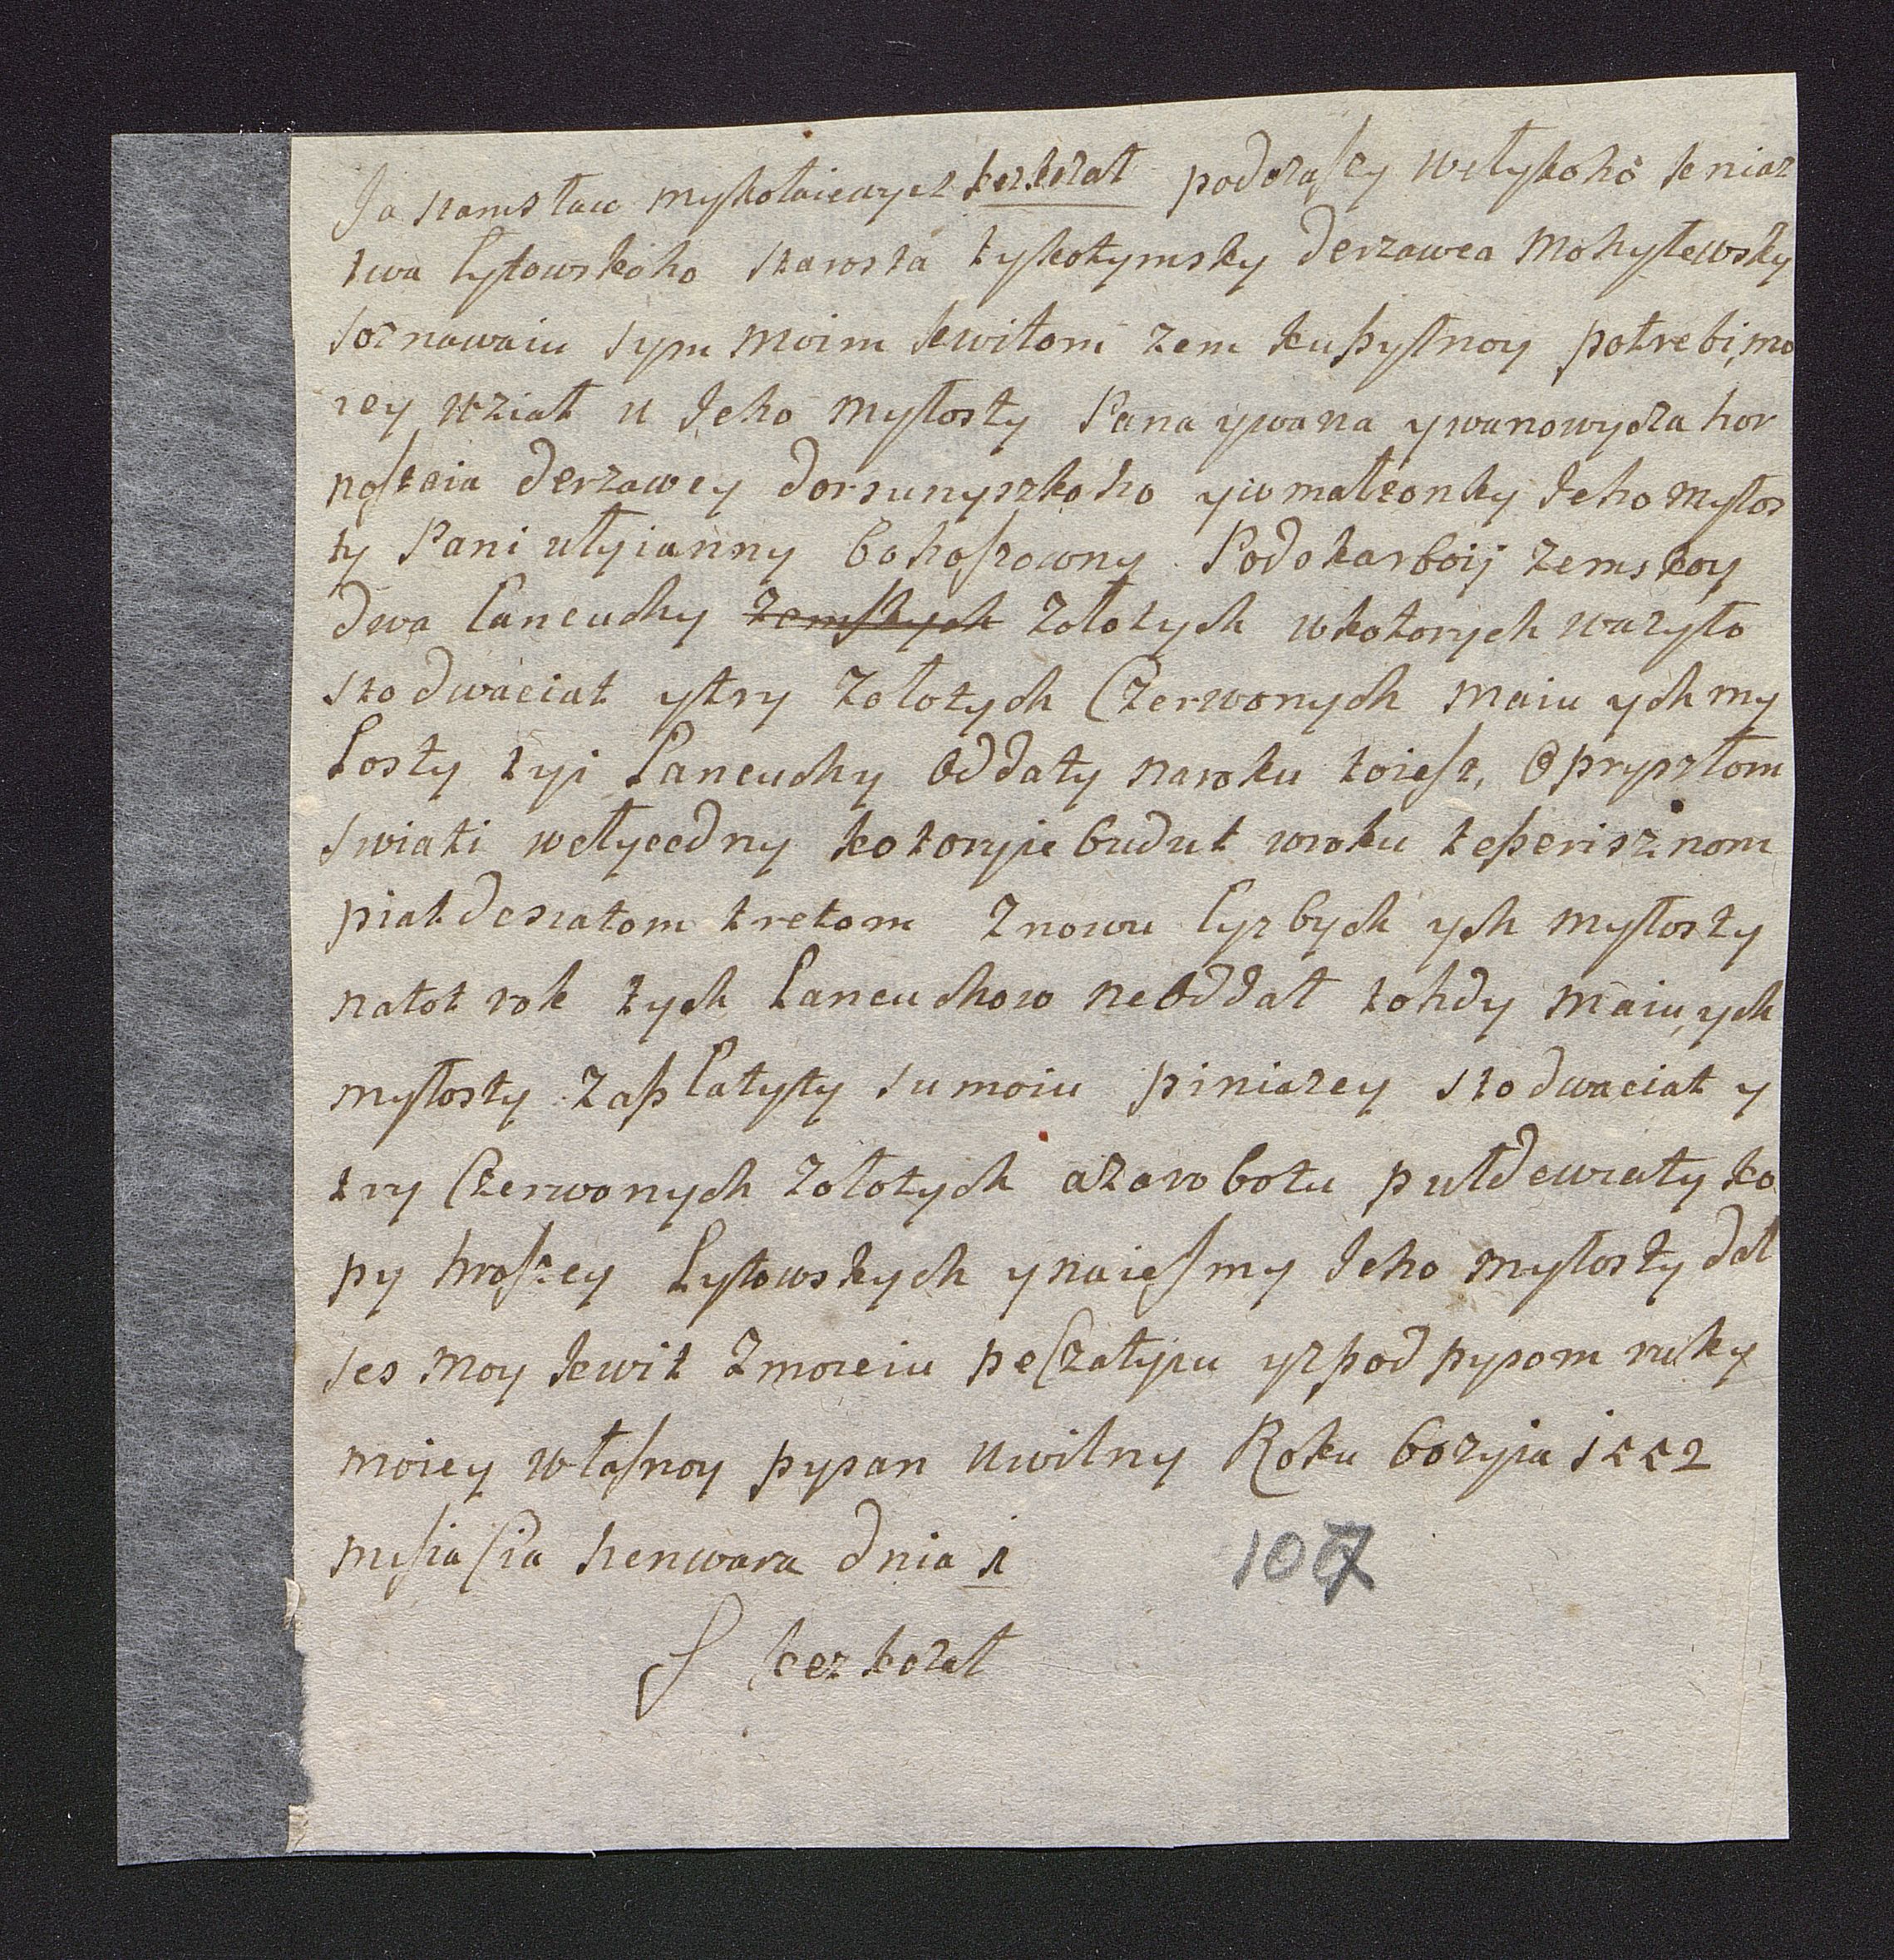 Ja stanisław mykołaiewycz kezkozał podczaszy wełykoho kniaz
twa łytowskoho starosta tykotymsky derzawca Mohyłewsky
soznawaiu sym moim kwitom zem ku pyłnoy potrebi mo
iey wział u Jeho Myłosty Pana ywana ywanowycza hor
nostaia derzawcy dorsunyszkoho y u małżonky Jeho myłos
ty Pani ułyianny bohoszowny Podskarboij zemskoy
dwa łancuchy zemskych zołotych w kotorych wazyło
sto dwaciat y try zołotych Czerwonych maiu ych my
łosty tyi łancuchy oddaty na roku toiest, o pryszłom
swiati wełycedny kotoryie budut w roku teperisznom
piatdesiatom tretom z nowu łyzbych ych myłosty
na tot rok tych łancuchow ne oddał tohdy maiu ych
myłosty zapłatyty sumoiu piniazey sto dwaciat y
try Czerwonych zołotych a za robotu pułdewiaty ko
py hroszey Łytowskych y na ies my Jeho myłosty dał
ses moy kwit z moieiu peczatyiu y z pod pysom ruky
moiey własnoy pysan u wilny Roku bozyia 1552
misiasia henwara dnia 1
107
S kezkozał